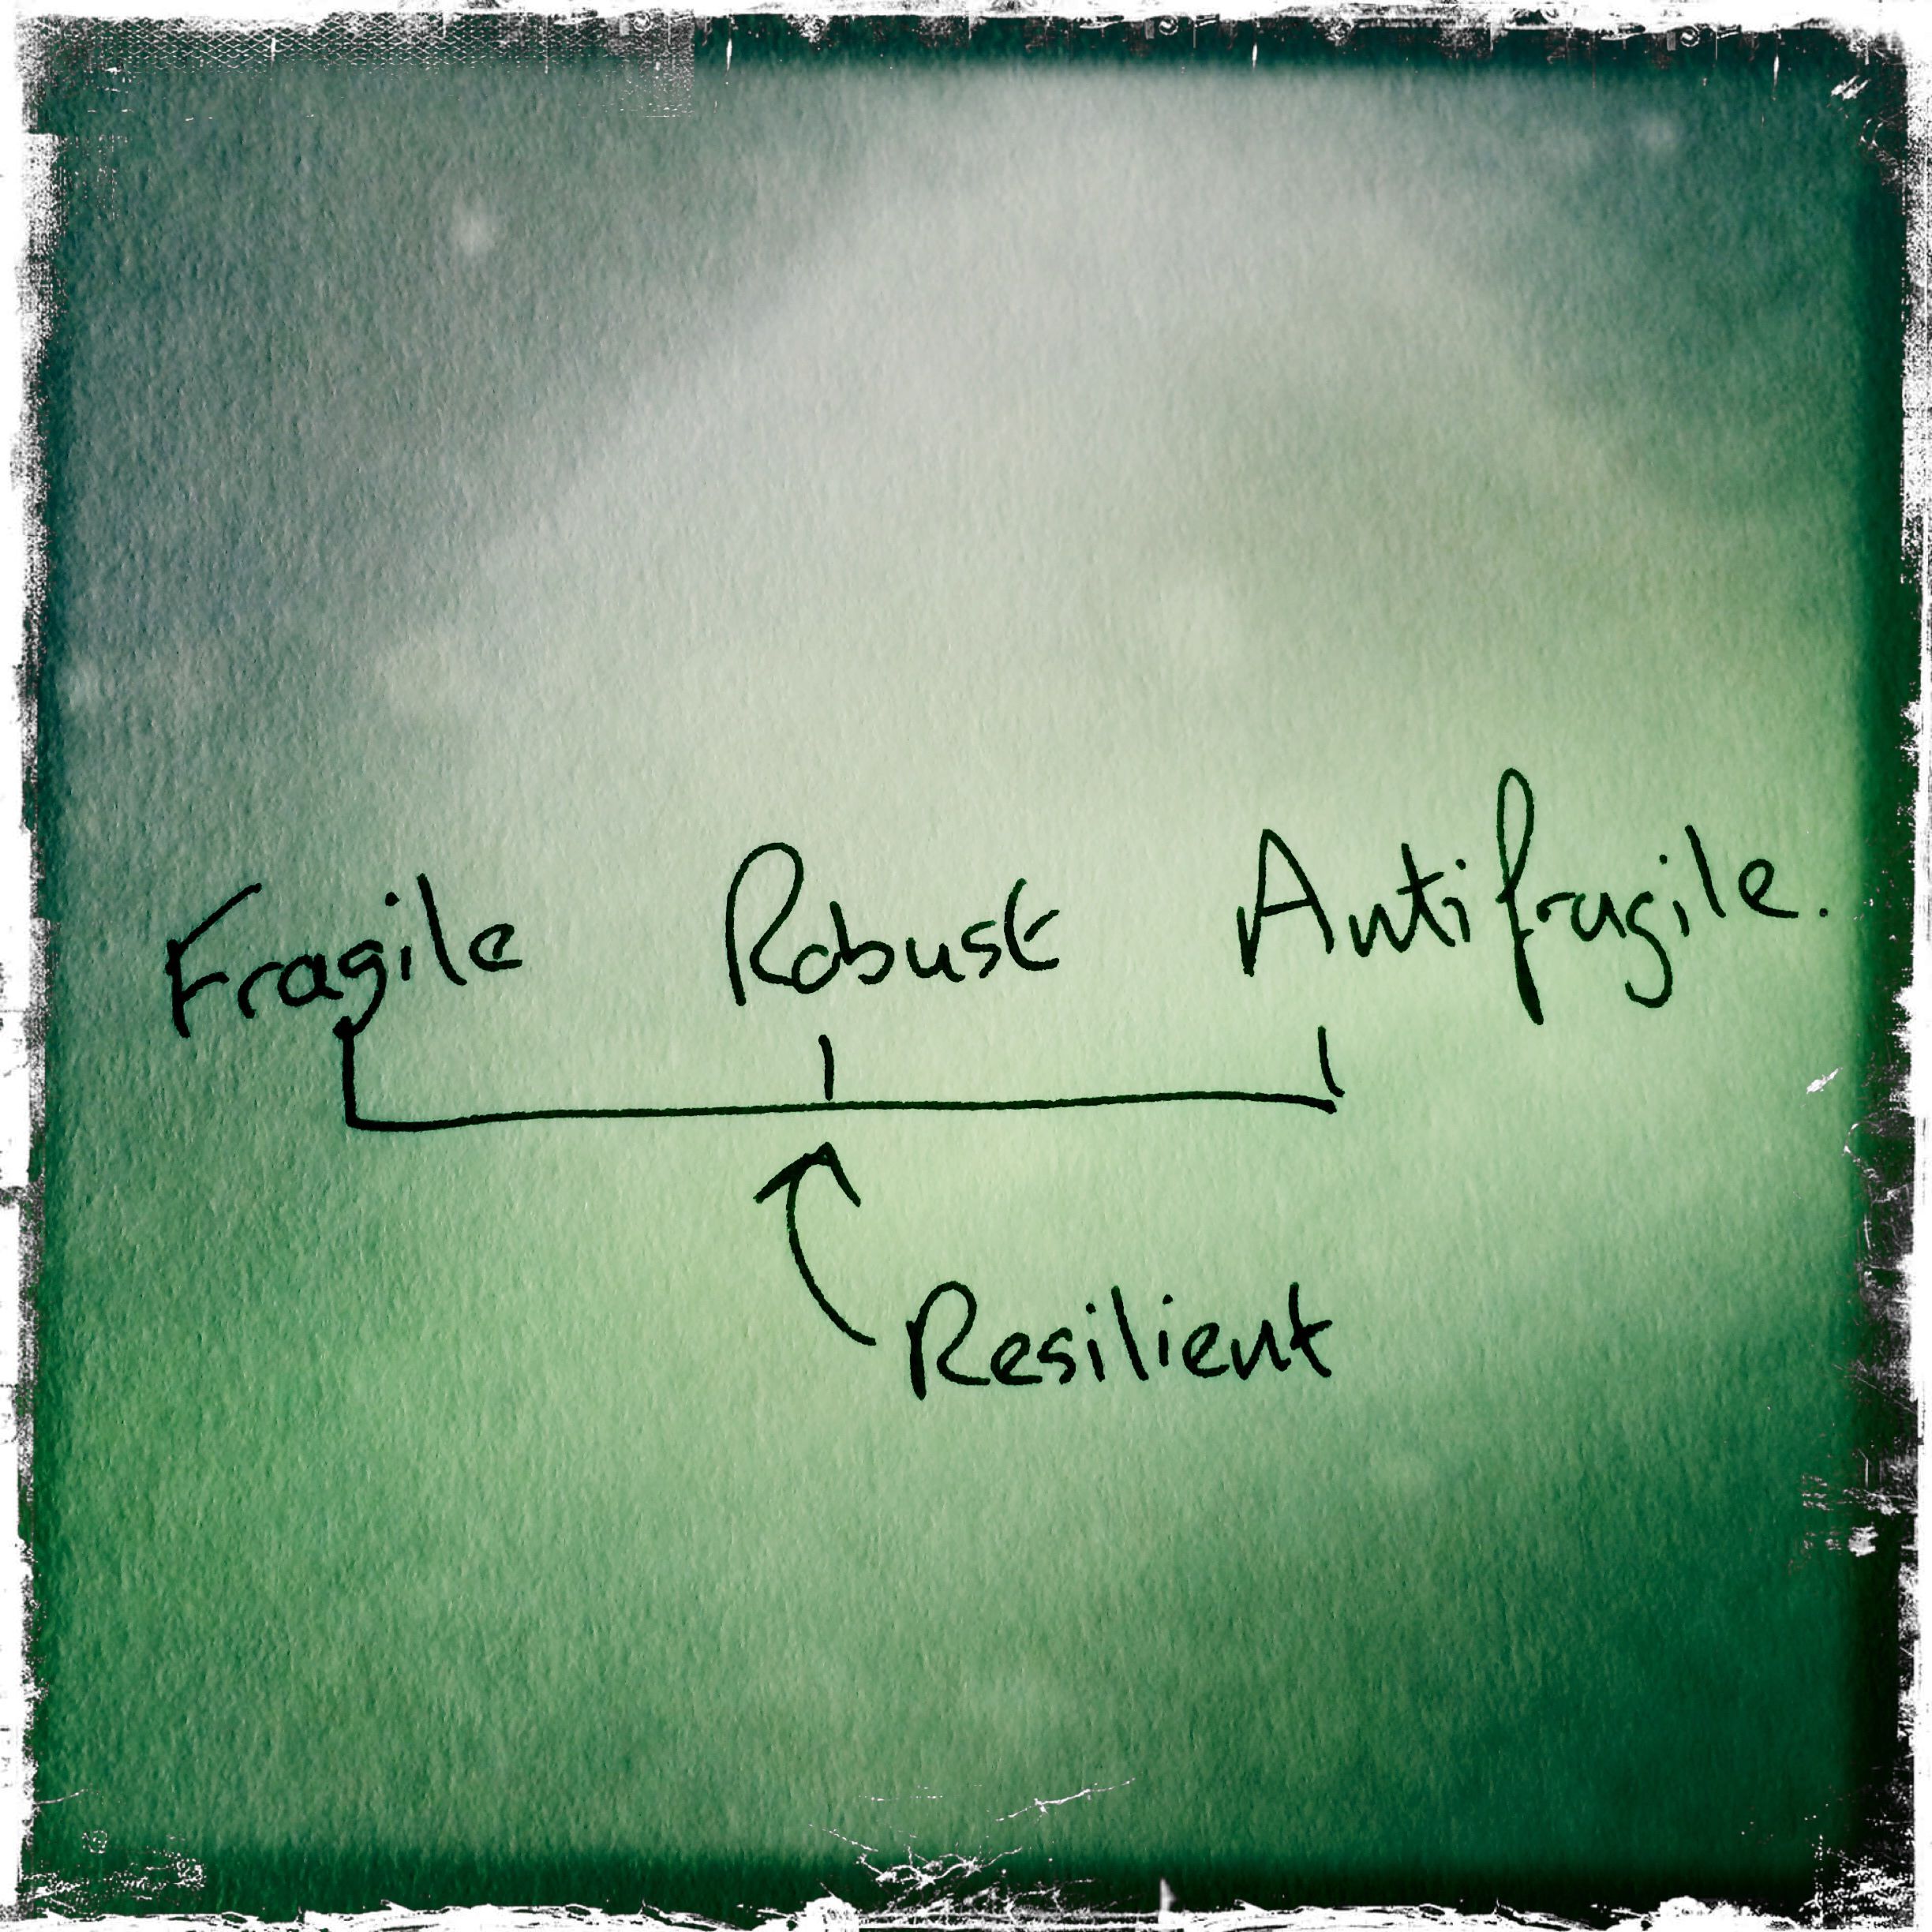 Fragile Robust Antifragile.
Resilient